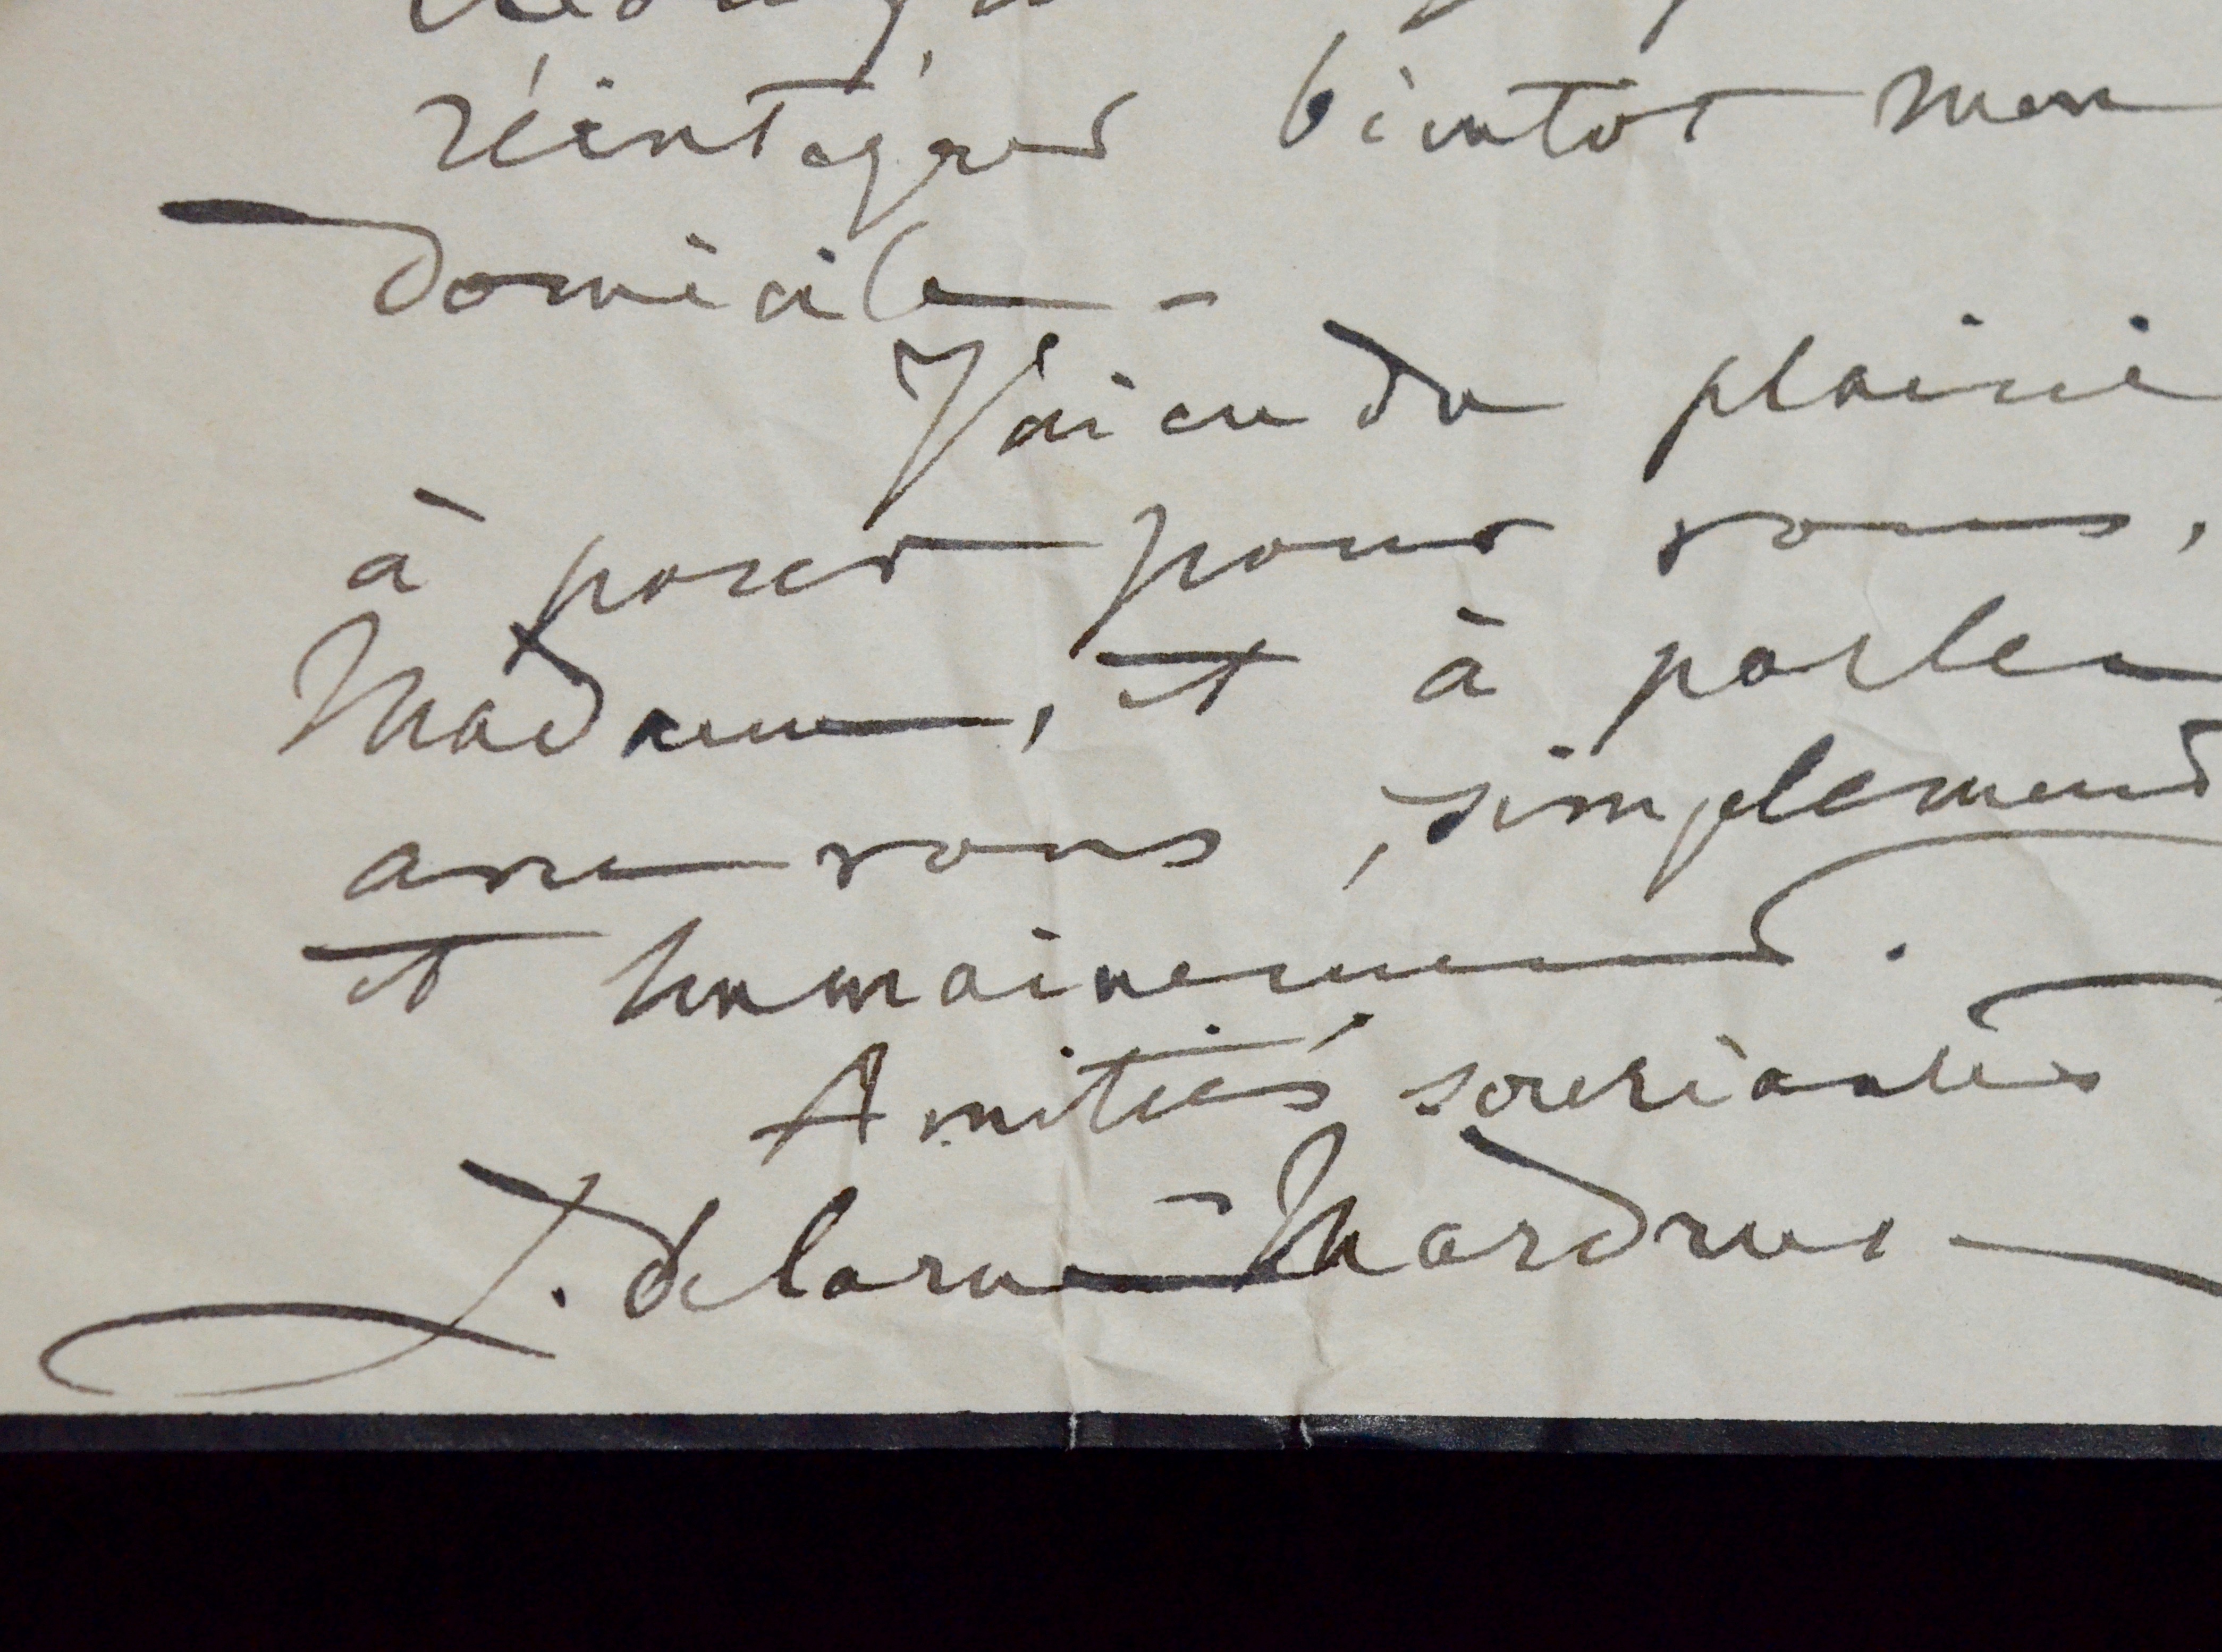 réintégrer bientôt mon
domicile -
J'ai eu du plaisi
à poser pour vous,
Madame, et à parler
avec vous, simplement
et humainement.
Amitiés souriantes
L. Delarue-Mardrus